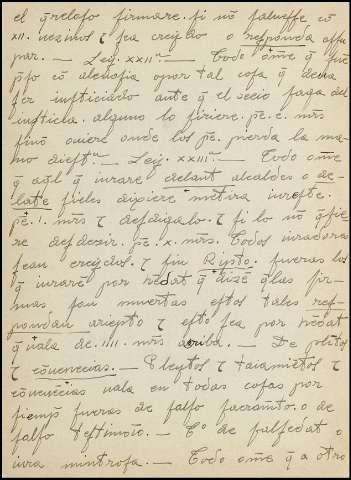 el q̄relofo firmare. fi nō faluesse cō
XII. vezinos ⁊ sea creydo o responda assu
par. — Ley. XXIIª. — Todo ōme q̄ fue
p̄so cō alevosia o por tal cosa q̄ deva
ser iusticiado ante q̄ el seeio faga del
iusticia. alguno lo firiere. pe. c. mrs
sinō oviere onde los pe. pierda la ma-
no diestra — Ley. XXIIIª. — Todo ōme
q̄ aq̄l q̄ iurare delant alcaldes o de-
late fieles dixiere mētira
pe. I. mrs ⁊ desdigalo. ⁊ si lo nō q̄sie
re desdezir. pe. X. mrs. Todos iuradores
sean creydos. ⁊ sin Rįpto. fueras los
q̄ iurarē por verdat q̄ dizē q̄ las fir-
mas son muertas estos tales res-
pondan a riepto ⁊ esto sea por verdat
q̄ vala de. IIII. mrs arriba. — De pleitos
⁊ cōvenecias. — Pleytos ⁊ taiamiētos ⁊
cōvenēcias vala en todas cosas por
siemp̄ fueras de falso sacramēto. o de
falso testimōio. — Tº de falsedat o
iura mintrosa. — Todo ōme q̄ a otro